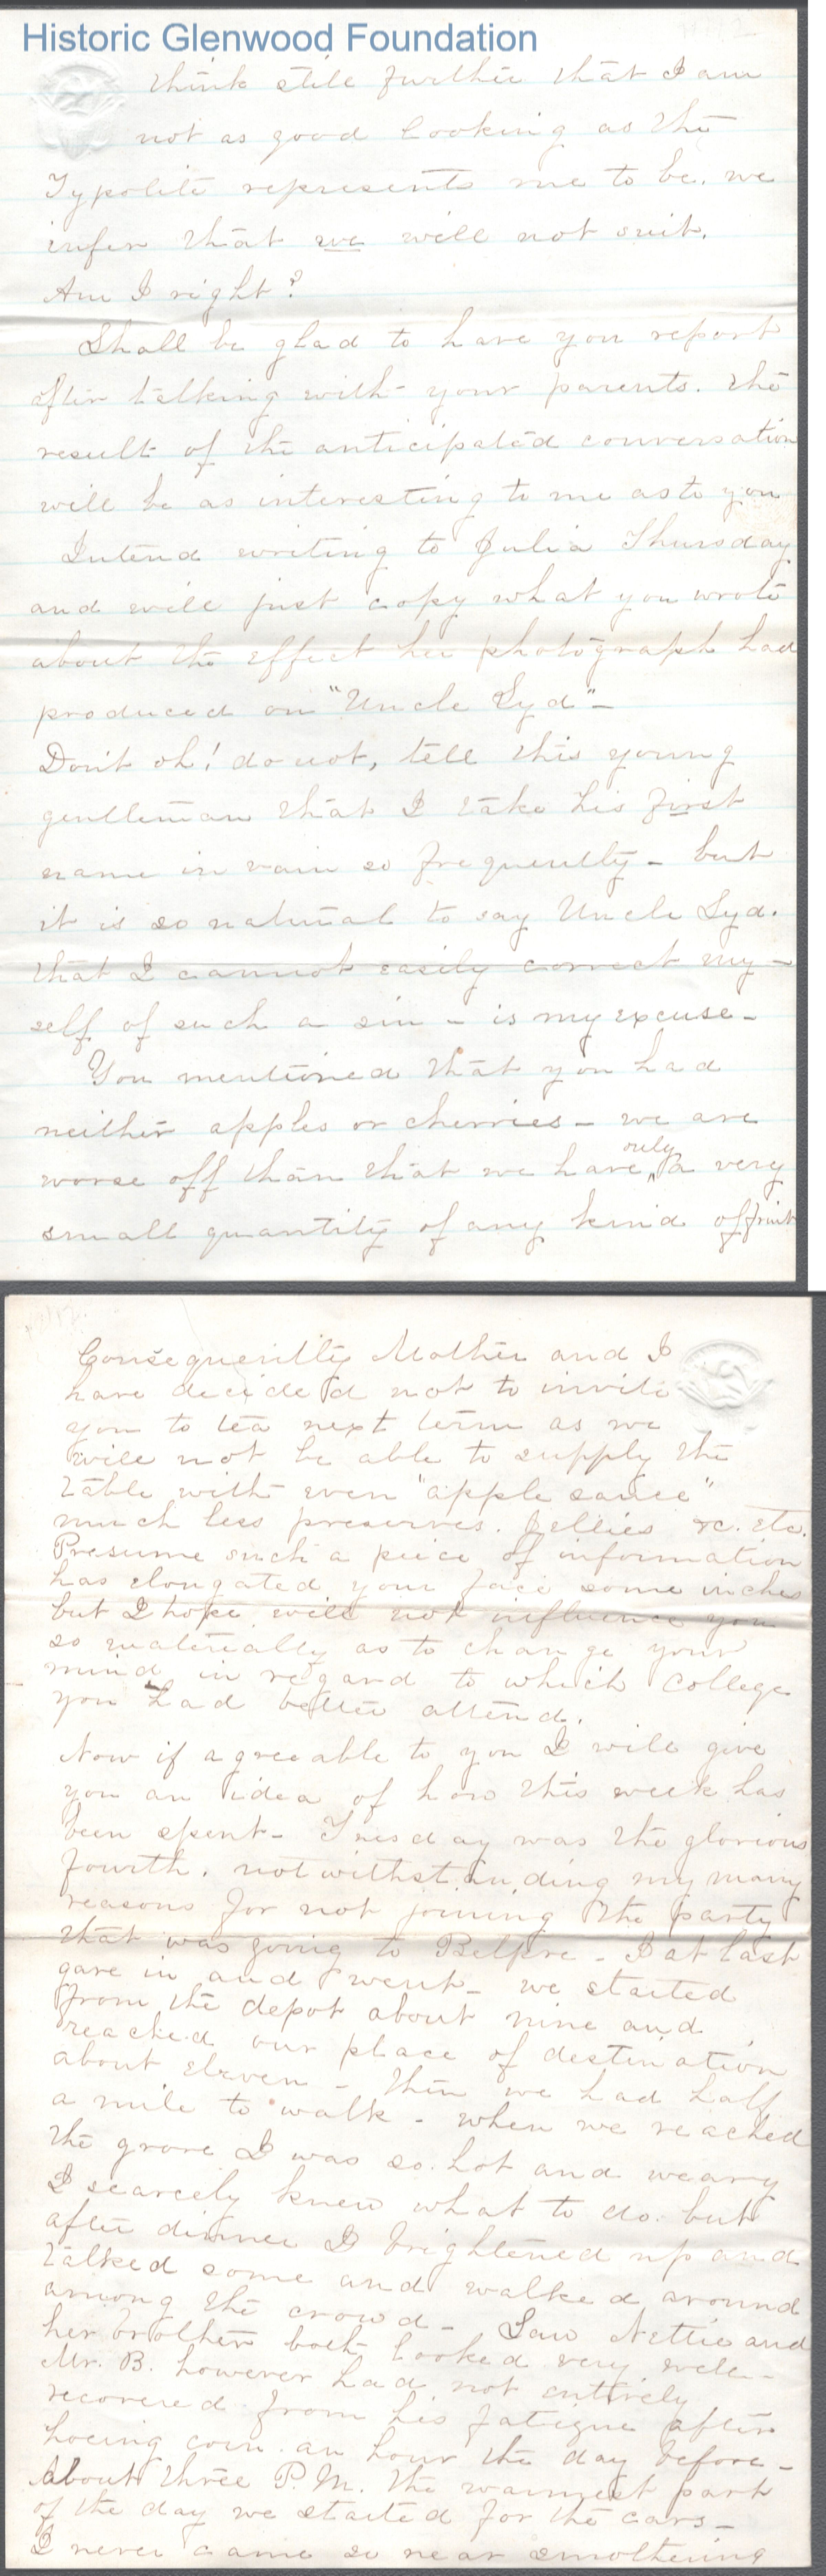 Historic Glenwood Foundation
think still further that I am
not as good looking as the
represents me to be. we
infer that we will not suit.
Am I right?
Shall be glad to have you report
after talking with your parents. the
result of the anticipated conversation
will be as interesting to me as to you
Intend writing to Julia Thursday
and will just copy what you wrote
about the effect her photograph had
produced on "Uncle Syd"-
Don't oh! do not, tell this young
gentleman that I take his first
name in vain so frequently - but
it is so natural to say Uncle Syd.
that I cannot easily correct my-
self of such a sin - is my excuse-
You mentioned that you had
neither apples or cherries - we are
worse off than that we have only a very
small quantity of any kind of fruit
Consequently Mother and I
have decided not to invite
you to tea next term as we
will not be able to supply the
table with even "apple sauce"
much less preserves. Jellies &c. etc.
Presume such a peice of information
has elongated your face some inches
but I hope will not influence you
so materially as to change your
mind in regard to which College
you had better attend.
Now if agreeable to you I will give
you an idea of how this week has
been spent- Tuesday was the glorious
fourth. notwithstanding my many
reasons for not joining the party
that was going to Belpre - I at last
gave in and went - we started
from the depot about nine and
reached our place of destination
about eleven - then we had half
a mile to walk - when we reached
the grove I was so hot and weary
I scarcely knew what to do. but
after dinner I brightened up and
talked some and walked around
among the crowd - Saw Nettie and
her brother both looked very well-
Mr. B. however had not entirely
recovered from his fatigue after
hoeing corn an hour the day before-
About three P.M. the warmest part
of the day we started for the cars-
I never came so near smothering